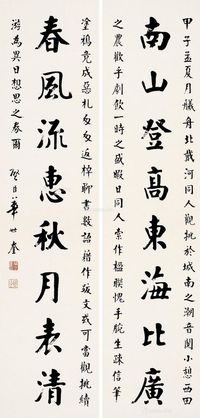 甲子孟夏月艤舟北戴河同人觀桃於城南之潮音閣小憩西田
南山登高東海比廣
之農歡手劇飲一時之盛暇日同人索作楹聯愧手腕生疎信筆
塗鴉竟成惡札匆匆返棹聊書數語藉作跋文或可當觀桃續
春風流惠秋月表清
游為異日想思之券爾
華世奎